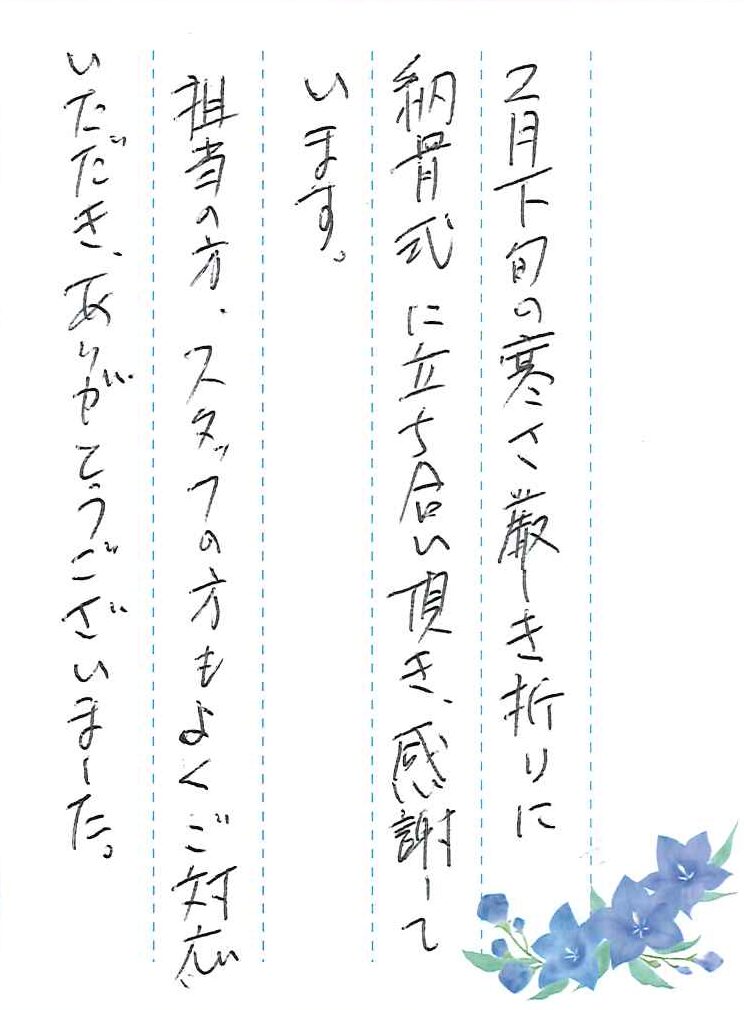 2月下旬の寒さ厳しき折りに
納骨式に立ち合い頂き、感謝して
います。
担当の方、スタッフの方もよくご対応
いただだき、ありがとうございました。